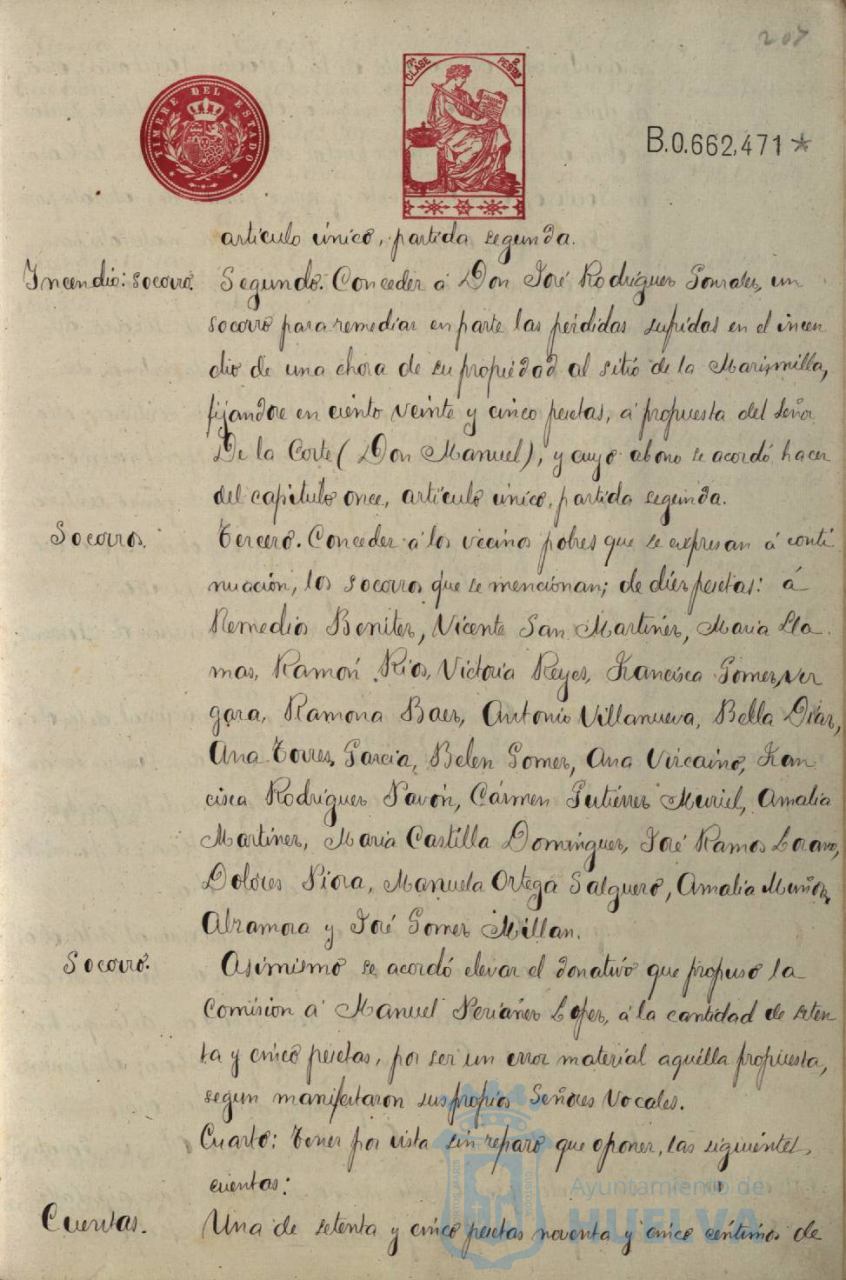 207
TIMBRE DEL ESTADO
7ª CLASE
PESETAS
B.0.662,471*
articulo único, partida segunda.
Incendio: socorro.
Segundo. Conceder á Don José Rodríguez Gonzalez, un
socorro para remediar en parte las pérdidas sufridas en el incen
dio de una choza de su propiedad al sitio de la Marismilla,
fijandose en ciento veinte y cinco pesetas, á propuesta del Señor
De la Corte (Don Manuel), y cuyo abono se acordó hacer
del capitulo once, articulo único, partida segunda.
Socorros.
Tercero. Conceder á los vecinos pobres que se expresan á conti
nuación, los socorros que se mencionan; de diez pesetas: á
Remedio Benitez, Vicente San Martinez, Maria Lla
mas, Ramón Rios, Victoria Reyes, Francisca Gomez Ver
gara, Ramona Baez, Antonio Villanueva, Bella Diaz,
Ana Torres Garcia, Belen Gomez, Ana Vizcaino, Fran
cisca Rodríguez Pavón, Cármen Gutiérrez Muriel, Amalia
Martinez, Maria Castilla Domínguez, José Ramos Lozano,
Dolores Piora, Manuela Ortega Salguero, Amalia Muñoz
Alzamora y José Gomez Millan.
Socorro.
Asimismo se acordó elevar el donativo que propuso la
Comision á Manuel Periañez Lopez, á la cantidad de seten
ta y cinco pesetas, por ser un error material aquélla propuesta,
segun manifestaron sus propios Señores Vocales.
Cuarto: Tener por vista sin reparo que oponer, las siguientes
cuentas:
Cuentas.
Una de setenta y cinco pesetas noventa y cinco centimos de
Ayuntamiento de
HUELVA